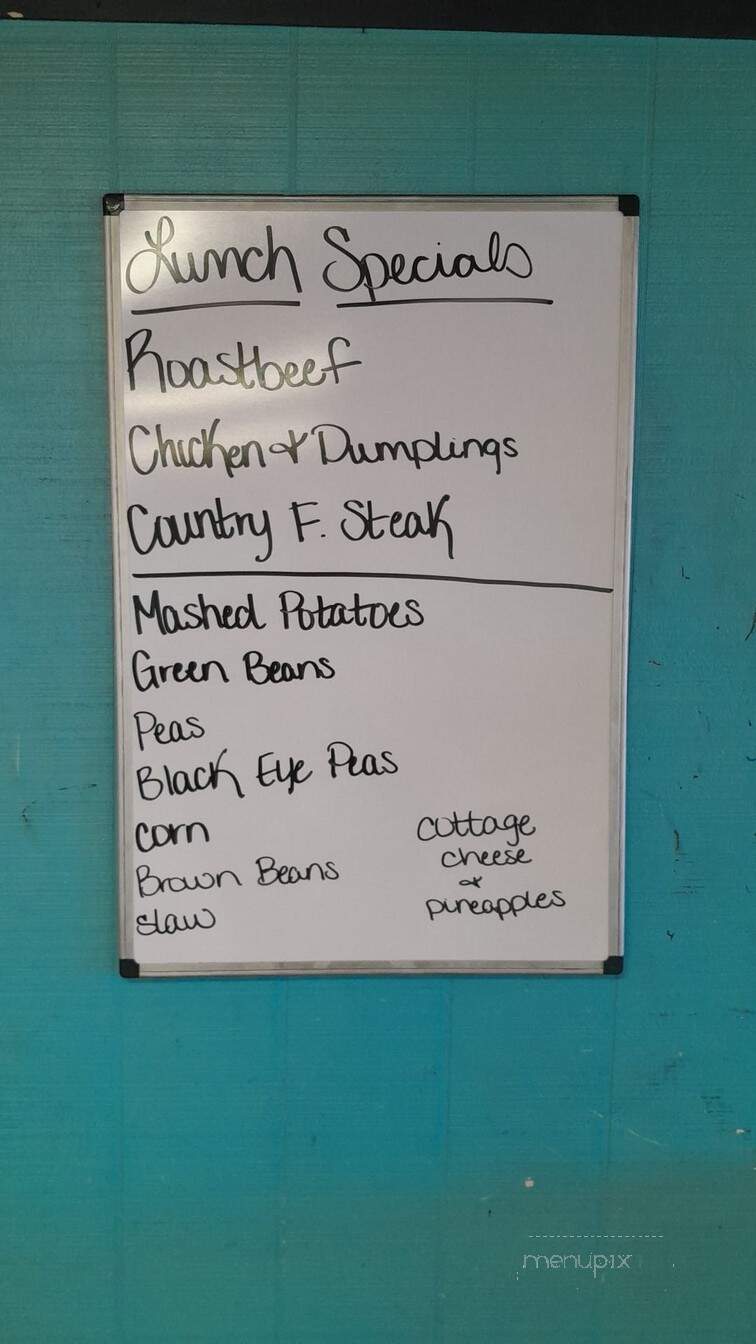 Lunch Specials
Roastbeef
Chicken & Dumplings
Country F. Steak
Mashed Potatoes
Green Beans
Peas
Black Eye Peas
corn
Brown Beans
slaw
cottage
cheese
&
pineapples
menupix